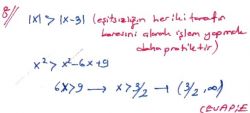 8) |x| > |x-3| (eşitsizliğin her iki tarafın
karesini alarak işlem yapmak
daha pratiktir)
x² > x²-6x+9
6x>9 → x>3/2 → (3/2, ∞)
CEVAPTIR